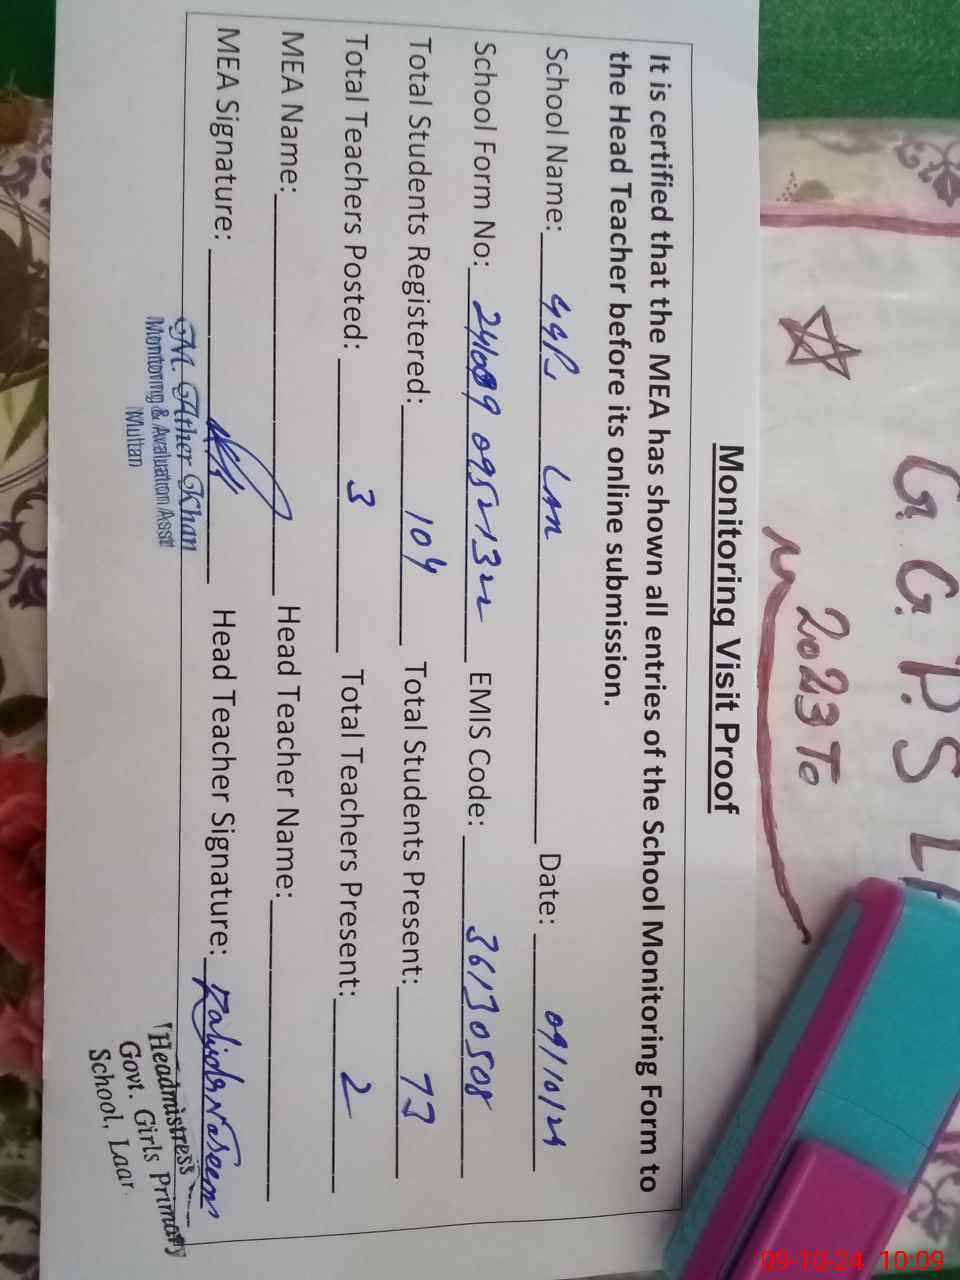 G.G.P.S L
2023 To
Monitoring Visit Proof
It is certified that the MEA has shown all entries of the School Monitoring Form to
the Head Teacher before its online submission.
School Name: GGPS Lar Date: 09/10/24
School Form No: EMIS Code: 36130508
Total Students Registered: 104 Total Students Present: 73
Total Teachers Posted: 3 Total Teachers Present: 2
MEA Name: Head Teacher Name:
MEA Signature: Head Teacher Signature: Naseem
M. Ather Khan
Monitoring & Avaluation Asstt
Multan
Headmistress
Govt. Girls Primary
School, Laar.
09-10-24 10:09